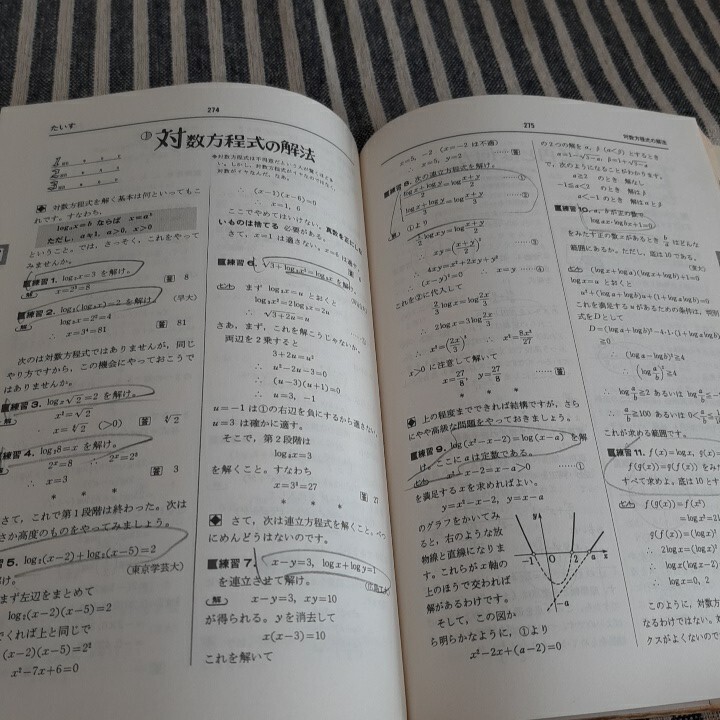 274
たいす
対数方程式の解法
対数方程式を解く基本は何といってもこ
れです。すなわち，
log_a x=b ならば x=a^b
ただし，a≠1，a>0，x>0
ということ。では，さっそく，これをやって
みませんか。
練習1. log₂x=3 を解け。
x=2³=8 [答] 8
練習2. log₂(log₃x)=2 を解け。
(早大)
log₃x=2²=4
∴ x=3⁴=81 [答] 81
次のは対数方程式ではありませんが，同じ
やり方ですから，この機会にやっておこうで
はありませんか。
練習3. logₓ√2=2 を解け。
x²=√2
∴ x=⁴√2 (>0) [答] ⁴√2
練習4. log₂8=x を解け。
2ˣ=8 ∴ 2ˣ=2³
∴ x=3 [答] 3
* * *
さて，これで第1段階は終わった。次は
さか高度のものをやってみましょう。
習5. log₂(x-2)+log₂(x-5)=2
(東京学芸大)
まず左辺をまとめて
log₂(x-2)(x-5)=2
でくれば上と同じで
(x-2)(x-5)=2²
x²-7x+6=0
∴ (x-1)(x-6)=0
∴ x=1, 6
ここでやめてはいけない。真数を正にしな
いものは捨てる必要がある。
さて，x=1 は適さない。x=6 は適す
練習6.
を解け。
まず log₃x=u とおくと
log₃x²=2log₃x=2u
∴ √3+2u=u
さあ，まず，これを解こうじゃないか。
両辺を2乗すると
3+2u=u²
∴ u²-2u-3=0
∴ (u-3)(u+1)=0
∴ u=3, -1
u=-1 は①の右辺を負にするから適さない。
u=3 は確かに適す。
そこで，第2段階は
log₃x=3
を解くこと。すなわち
x=3³=27
[答] 27
* * *
さて，次は連立方程式を解くこと。べつに
めんどうはないのです。
練習7. x-y=3, log x+log y=1
を連立させて解け。
x-y=3, xy=10
が得られる。y を消去して
x(x-3)=10
これを解いて
275
対数方程式の解法
x=5, -2 (x=-2 は不適)
∴ x=5, y=2 [答]
練習8. 次の連立方程式を解け。
①より
∴ 4xy=x²+2xy+y²
∴ (x-y)²=0
これを②に代入して
x>0 に注意して解いて
x=27/8 y=27/8 [答]
上の程度までできれば結構ですが，さら
にやや高級な問題をやっておきましょう。
練習9. log(x²-x-2)=log(x-a) を解
け。ここに a は定数である。
x²-x-2=x-a>0 ……①
を満足する x を求めればよい。
y=x²-x-2, y=x-a
のグラフをかいてみ
ると，右のような放
物線と直線になりま
す。これらが x 軸の
上のほうで交われば
解があるわけです。
そして，この図か
ら明らかなように，①より
x²-2x+(a-2)=0
y
-1
0
2
a
x
-a
の2つの解を α, β (α<β) とするとき
α=1-√3-a, β=1+√3-a
で，次のようになることがわかります。
a≧2 のとき 解なし
-1≦a<2 のとき 解は β
a<-1 のとき 解は α, β
練習10. a, b が正の数で
をみたす正の数 x があるとき
はどんな
範囲にあるか。ただし，底は10である。
(東大)
(log x+log a)(log x+log b)+1=0
log x=u とおくと
u²+(log a+log b)u+(1+log a log b)=0
これを満足する u があるための条件は，判別
式を D として
D=(log a+log b)²-4·1·(1+log a log b)
≧0
∴ (log a-log b)²≧4
これが求める範囲です。
練習11. f(x)=log x, g(x)=
f(g(x))=g(f(x)) をみた
すべて求めよ。底は10とす
f(g(x))=f(x²)
=log x²=2l
g(f(x))=g(log x)
∴ 2log x=(log x)²
∴ log x(log x-
∴ log x=0, 2
このように，対数方
なるわけではない。対
クスがよくないので